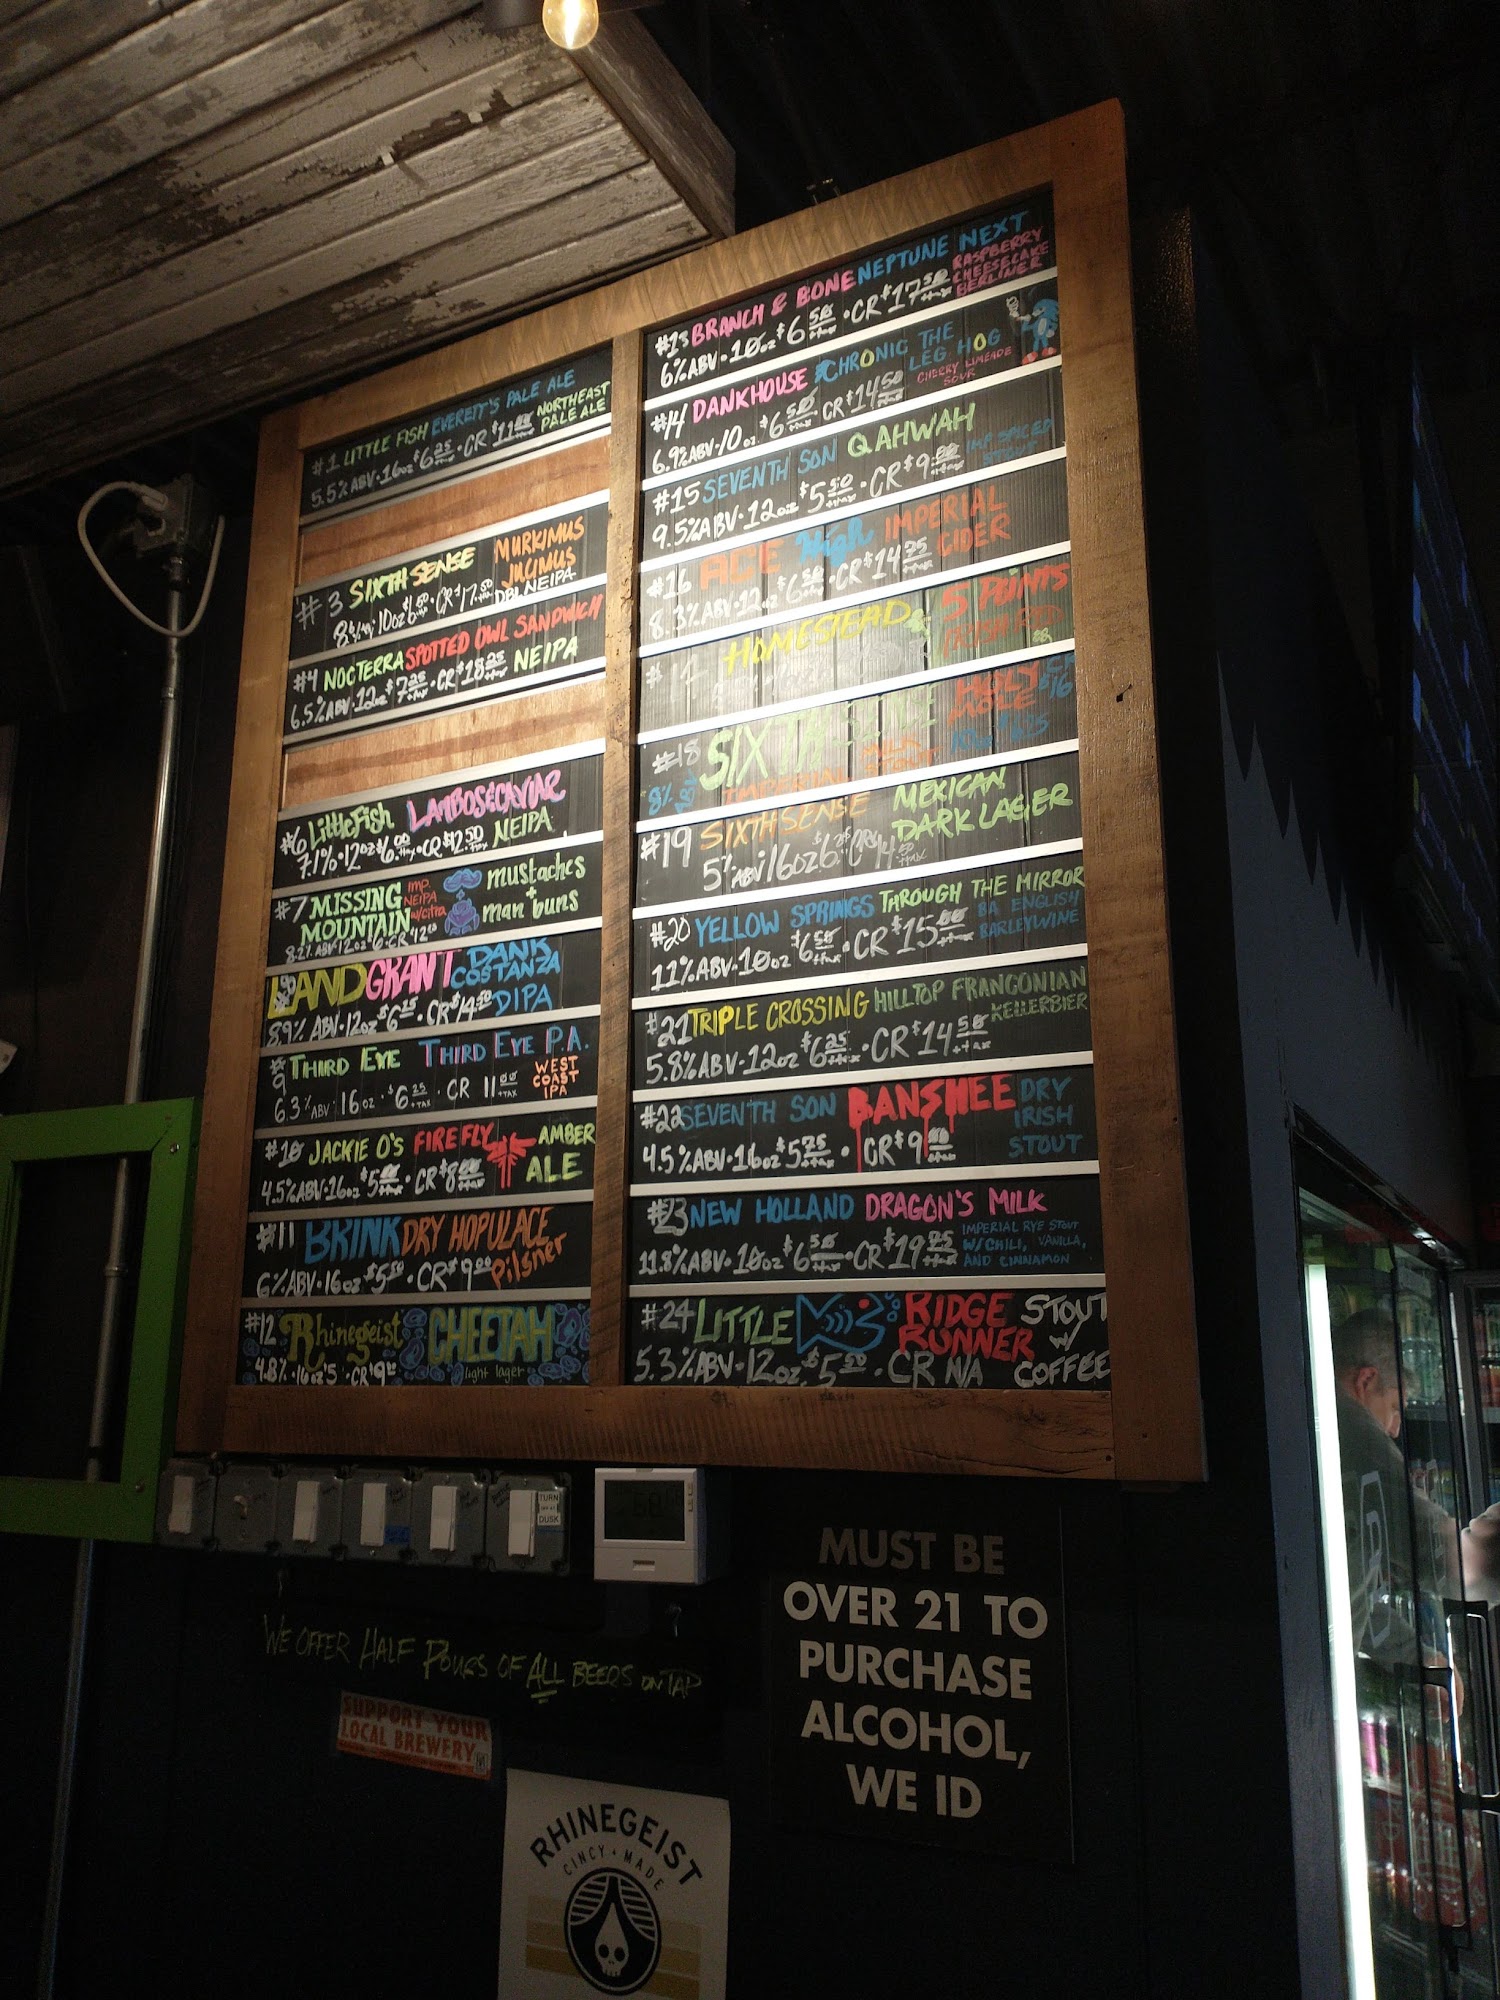 #1 LITTLE FISH EVERETT'S PALE ALE
5.5% ABV · 16oz $6.25 +tax · CR $11.00 NORTHEAST PALE ALE
#3 SIXTH SENSE MURKIMUS JUCIMUS
10oz $6.50 · CR $17.50 DBL NEIPA
#4 NOCTERRA SPOTTED OWL SANDWICH
6.5% ABV · 12oz $7.25 · CR $18.25 NEIPA
#6 LittleFish LAMBOS&CAVIAR
7.1% · 12oz $6.00 +tax · CR $12.50 NEIPA
#7 MISSING MOUNTAIN IMP. NEIPA w/citra mustaches + man buns
8.2% ABV · 12oz · 6 · CR $12
LAND GRANT DANK COSTANZA
8.9% ABV · 12oz $6.25 · CR $14.50 DIPA
#9 THIRD EYE THIRD EYE P.A.
6.3% ABV · 16oz · $6.25 +TAX · CR 11.00 +TAX WEST COAST IPA
#10 JACKIE O'S FIREFLY AMBER ALE
4.5% ABV · 16oz $5.00 +tax · CR $8.00 +tax
#11 BRINK DRY HOPULACE
6% ABV · 16oz $5.50 · CR $9.00 Pilsner
#12 Rhinegeist CHEETAH
4.8% · 16oz $5 · CR $9.00 light lager
#13 BRANCH & BONE NEPTUNE NEXT
6% ABV · 10oz $6.50 +tax · CR $17.50 +tax RASPBERRY CHEESECAKE BERLINER
#14 DANKHOUSE CHRONIC THE LEG HOG
6.9% ABV · 10oz $6.50 +tax CR $14.50 +tax CHERRY LIMEADE SOUR
#15 SEVENTH SON QAHWAH
9.5% ABV · 12oz $5.50 +tax · CR $9.00 +tax IMP SPICED STOUT
#16 ACE High IMPERIAL CIDER
8.3% ABV · 12oz · CR $14.75
HOMESTEAD 5 POINTS
IRISH RED
#18 SIXTH SENSE HOLY MOLE
8% ABV IMPERIAL MILK STOUT
#19 SIXTH SENSE MEXICAN DARK LAGER
5% ABV 16oz
#20 YELLOW SPRINGS THROUGH THE MIRROR
11% ABV · 10oz $6.50 +tax · CR $15.00 +tax BA ENGLISH BARLEYWINE
#21 TRIPLE CROSSING HILLTOP FRANCONIAN KELLERBIER
5.8% ABV · 12oz $6.25 +tax · CR $14.50 +tax
#22 SEVENTH SON BANSHEE DRY IRISH STOUT
4.5% ABV · 16oz $5.75 +tax · CR $9.00 +tax
#23 NEW HOLLAND DRAGON'S MILK
11.8% ABV · 10oz $6.50 +tax · CR $19.75 +tax IMPERIAL RYE STOUT W/CHILI, VANILLA, AND CINNAMON
#24 LITTLE RIDGE RUNNER STOUT W/ COFFEE
5.3% ABV · 12oz. $5.50 · CR N/A
TURN
DUSK
WE OFFER HALF POURS OF ALL BEERS ON TAP
SUPPORT YOUR
LOCAL BREWERY
MUST BE
OVER 21 TO
PURCHASE
ALCOHOL,
WE ID
RHINEGEIST
CINCY MADE